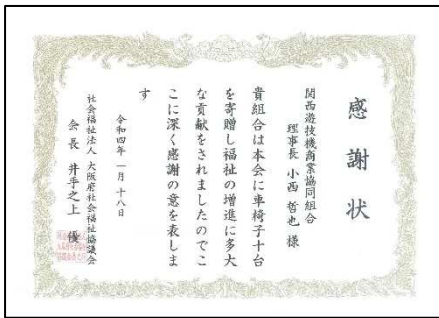 感謝状
関西遊技機商業協同組合
理事長 小西 哲也 様
貴組合は本会に車椅子十台
を寄贈し福祉の増進に多大
な貢献をされましたのでこ
こに深く感謝の意を表しま
す
令和四年一月十八日
社会福祉法人 大阪府社会福祉協議会
会長 井手之上 優